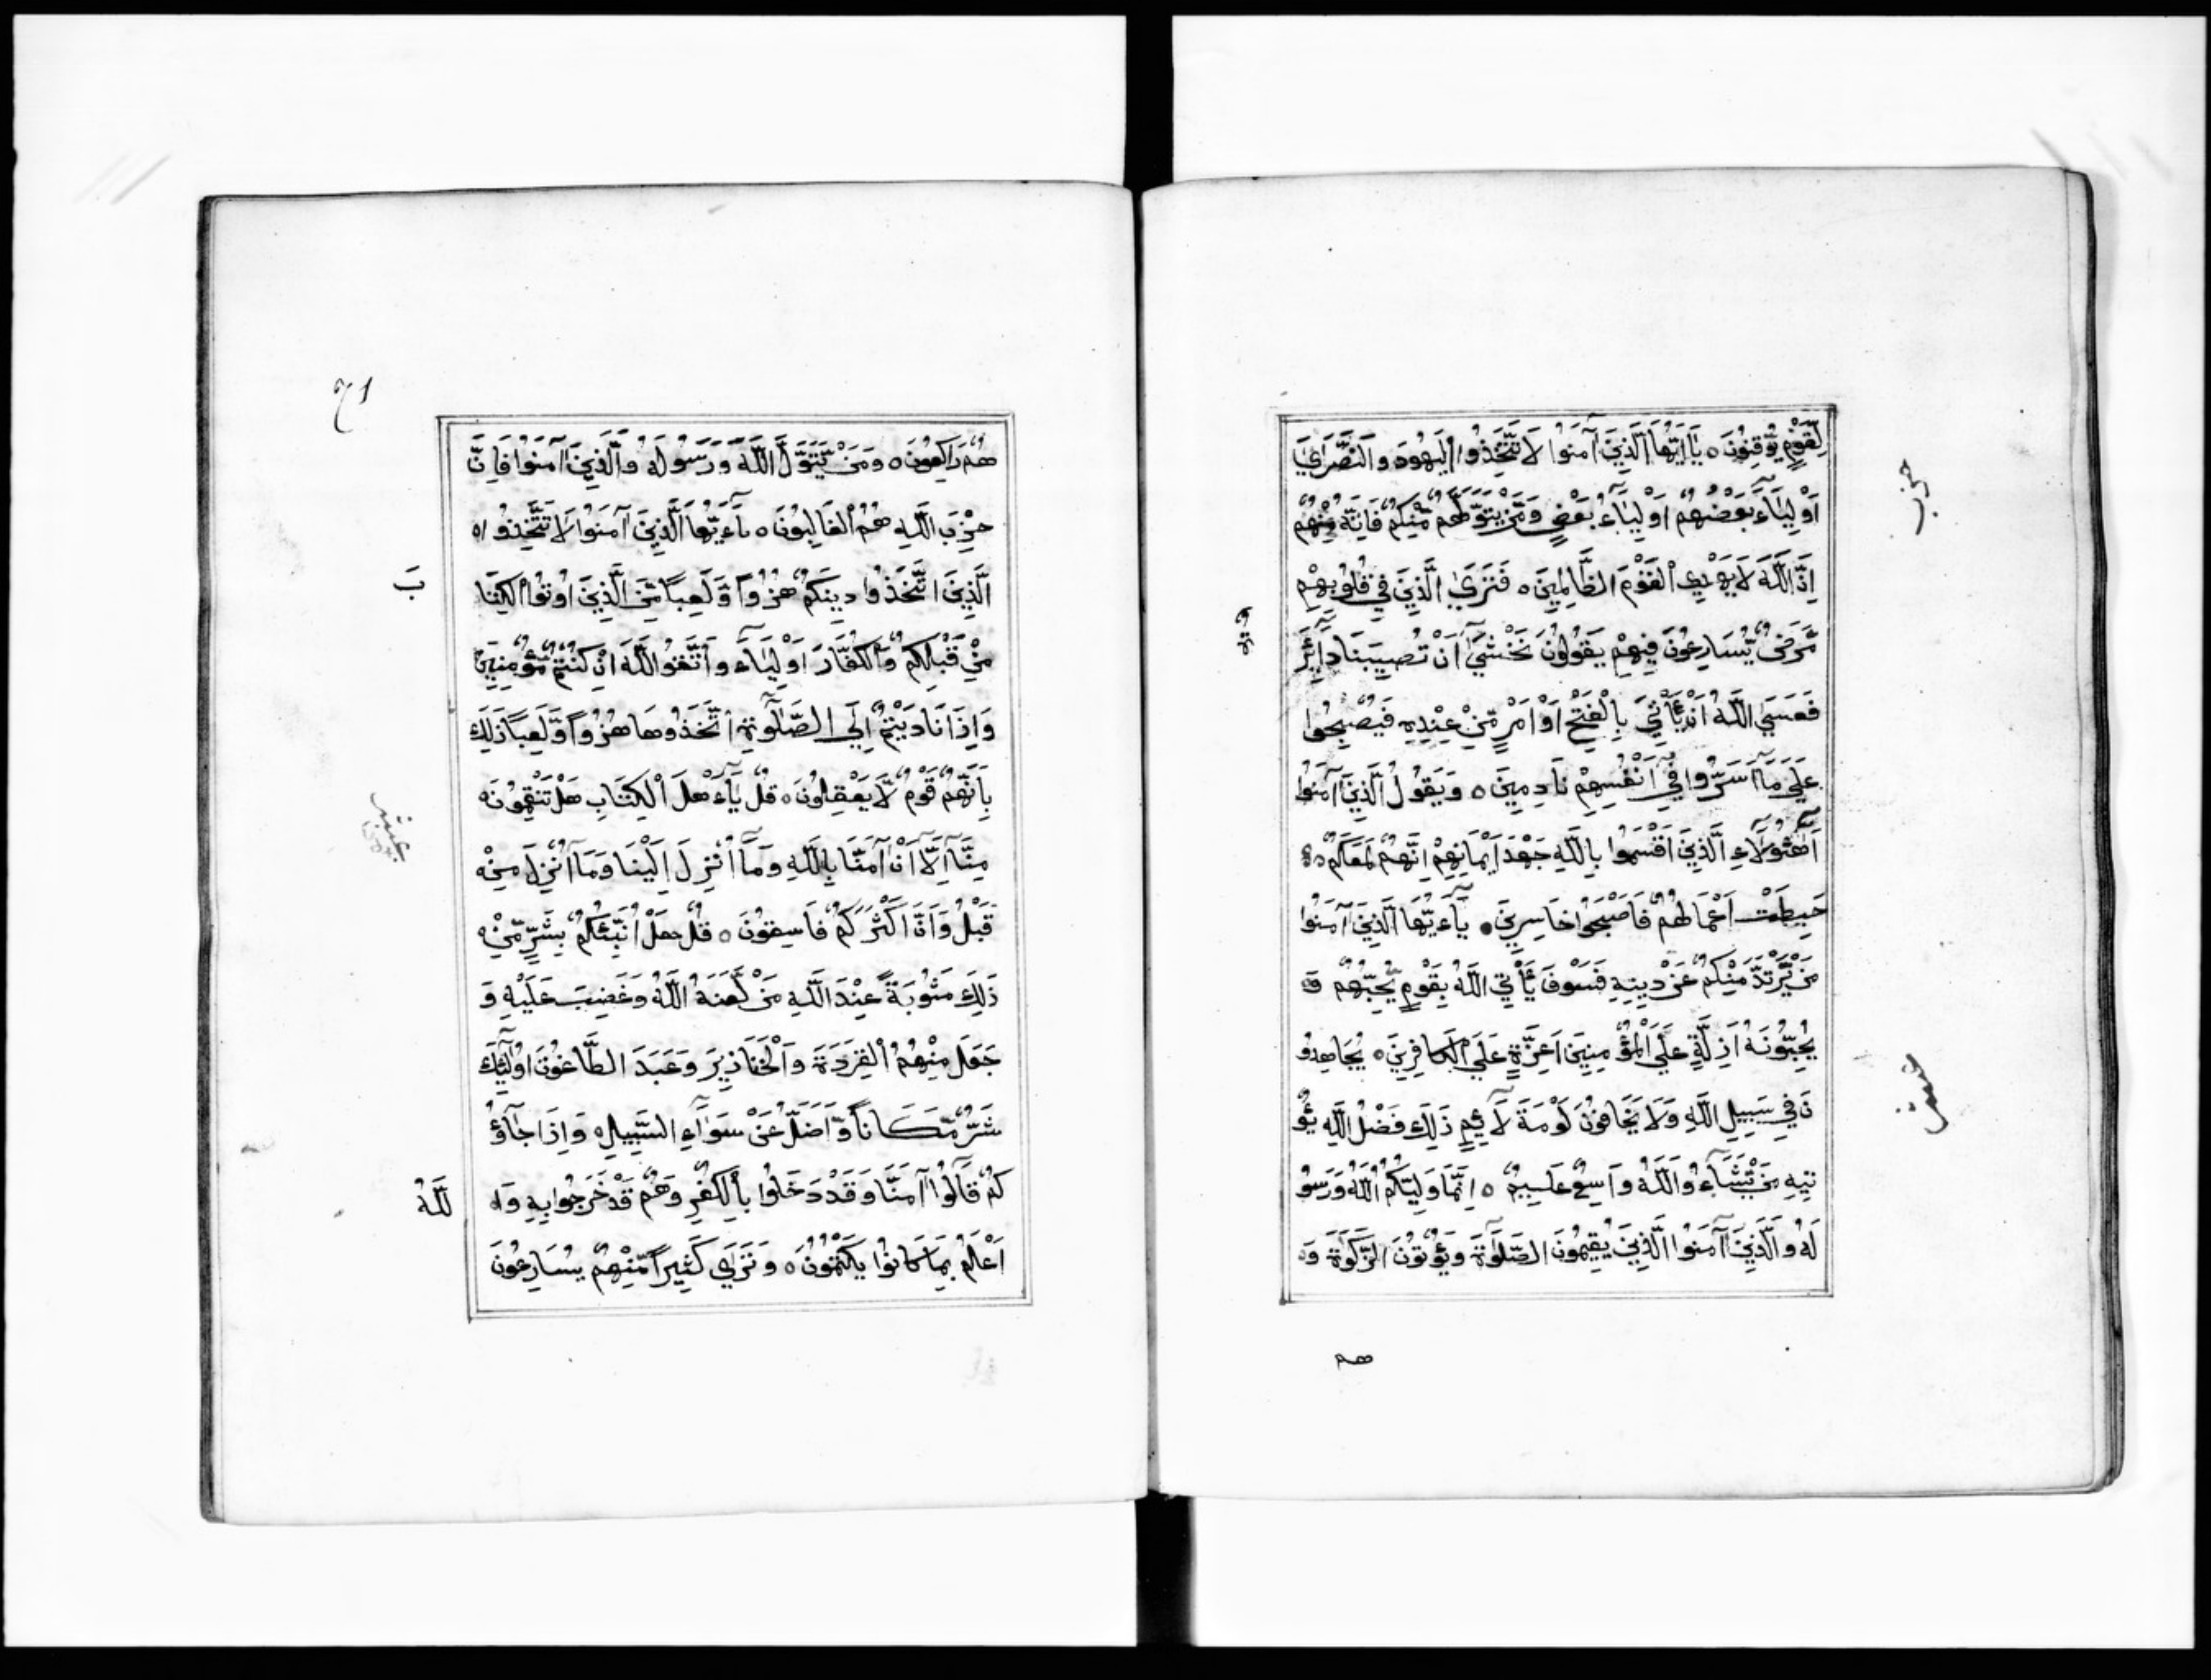 لِّقَوْمٍ يُّوْقِنُوْنَ ه يَا اَيُّهَا الَّذِيْنَ اٰمَنُوْا لَا تَتَّخِذُوا الْيَهُوْدَ وَ النَّصَرٰيٓ
اَوْلِيَآءَ بَعْضُهُمْ اَوْلِيَآءُ بَعْضٍ وَ مَنْ يَّتَوَلَّهُمْ مِّنْكُمْ فَاِنَّهٗ مِنْهُمْ
اِنَّ اللّٰهَ لَا يَهْدِي الْقَوْمَ الظَّالِمِيْنَ ه فَتَرَي الَّذِيْنَ فِيْ قُلُوْبِهِمْ
مَّرَضٌ يُّسَارِعُوْنَ فِيْهِمْ يَقُوْلُوْنَ نَخْشٰيٓ اَنْ تُصِيْبَنَا دَآئِرَ
ةٌ
فَعَسَي اللّٰهُ اَنْ يَّأْتِيَ بِالْفَتْحِ اَوْ اَمْرٍ مِّنْ عِنْدِهٖ فَيُصْبِحُوْا
عَلٰي مَآ اَسَرُّوْا فِيْٓ اَنْفُسِهِمْ نَادِمِيْنَ ه وَ يَقُوْلُ الَّذِيْنَ اٰمَنُوْا
اَهٰٓؤُلَآءِ الَّذِيْنَ اَقْسَمُوْا بِاللّٰهِ جَهْدَ اَيْمَانِهِمْ اِنَّهُمْ لَمَعَكُمْ ه
حَبِطَتْ اَعْمَالُهُمْ فَاَصْبَحُوْا خَاسِرِيْنَ ه يٰٓاَيُّهَا الَّذِيْنَ اٰمَنُوْا
مَنْ يَّرْتَدَّ مِنْكُمْ عَنْ دِيْنِهٖ فَسَوْفَ يَأْتِي اللّٰهُ بِقَوْمٍ يُّحِبُّهُمْ وَ
يُحِبُّوْنَهٗ اَذِلَّةٍ عَلَي الْمُؤْمِنِيْنَ اَعِزَّةٍ عَلَي الْكَافِرِيْنَ ه يُجَاهِدُو
نَ فِيْ سَبِيْلِ اللّٰهِ وَ لَا يَخَافُوْنَ لَوْمَةَ لَآئِمٍ ذٰلِكَ فَضْلُ اللّٰهِ يُؤْ
تِيْهِ مَنْ يَّشَآءُ وَ اللّٰهُ وَاسِعٌ عَلِيْمٌ ه اِنَّمَا وَلِيُّكُمُ اللّٰهُ وَ رَسُوْ
لُهٗ وَ الَّذِيْنَ اٰمَنُوا الَّذِيْنَ يُقِيْمُوْنَ الصَّلٰوةَ وَ يُؤْتُوْنَ الزَّكٰوةَ وَ
هم
حزب
ثمن
٦١
هُمْ رَاكِعُوْنَ ه وَ مَنْ يَّتَوَلَّ اللّٰهَ وَ رَسُوْلَهٗ وَ الَّذِيْنَ اٰمَنُوْا فَاِنَّ
حِزْبَ اللّٰهِ هُمُ الْغَالِبُوْنَ ه يٰٓاَيُّهَا الَّذِيْنَ اٰمَنُوْا لَا تَتَّخِذُوا
الَّذِيْنَ اتَّخَذُوْا دِيْنَكُمْ هُزُوًا وَّ لَعِبًا مِّنَ الَّذِيْنَ اُوْتُوا الْكِتَا
بَ
مِنْ قَبْلِكُمْ وَ الْكُفَّارَ اَوْلِيَآءَ وَ اتَّقُوا اللّٰهَ اِنْ كُنْتُمْ مُّؤْمِنِيْنَ
وَ اِذَا نَادَيْتُمْ اِلَي الصَّلٰوةِ اتَّخَذُوْهَا هُزُوًا وَّ لَعِبًا ذٰلِكَ
بِاَنَّهُمْ قَوْمٌ لَّا يَعْقِلُوْنَ ه قُلْ يٰٓاَهْلَ الْكِتَابِ هَلْ تَنْقِمُوْنَ
مِنَّآ اِلَّآ اَنْ اٰمَنَّا بِاللّٰهِ وَ مَآ اُنْزِلَ اِلَيْنَا وَ مَآ اُنْزِلَ مِنْ
قَبْلُ وَ اَنَّ اَكْثَرَكُمْ فَاسِقُوْنَ ه قُلْ هَلْ اُنَبِّئُكُمْ بِشَرٍّ مِّنْ
ذٰلِكَ مَثُوْبَةً عِنْدَ اللّٰهِ مَنْ لَّعَنَهُ اللّٰهُ وَ غَضِبَ عَلَيْهِ وَ
جَعَلَ مِنْهُمُ الْقِرَدَةَ وَ الْخَنَازِيْرَ وَ عَبَدَ الطَّاغُوْتَ اُولٰٓئِكَ
شَرٌّ مَّكَانًا وَّ اَضَلُّ عَنْ سَوَآءِ السَّبِيْلِ ه وَ اِذَا جَآؤُ
كُمْ قَالُوْٓا اٰمَنَّا وَ قَدْ دَخَلُوْا بِالْكُفْرِ وَ هُمْ قَدْ خَرَجُوْا بِهٖ وَ ا
للّٰهُ
اَعْلَمُ بِمَا كَانُوْا يَكْتُمُوْنَ ه وَ تَرٰي كَثِيْرًا مِّنْهُمْ يُسَارِعُوْنَ